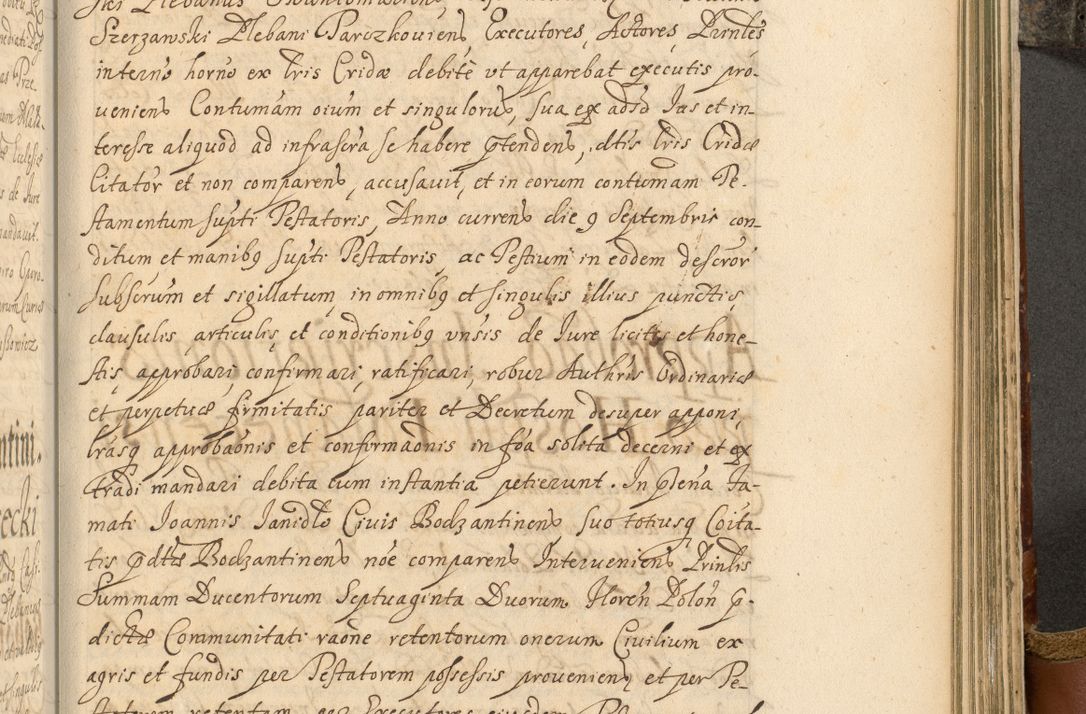 Szerzawski Plebani Parczkoviens Executores, Actores, Prinles
interno horno ex lris Cridæ debite vt apparebat executis pro-
veniens Contumam oium et singuloru, sua eq adsd Jus et in-
teresse aliquod ad infrasera se habere ptendens, dtis lris Cridæ
Citator et non comparens, accusavit, et in eorum contumam Te-
stamentum supti Testatoris, Anno currens die 9 Septembris con-
ditum et manibq supti Testatoris, ac Testium in eodem descror
subscrum et sigillatum, in omnibq et singulis illius punctis,
clausulis, articulis, et conditionibq vnsis de Jure licitis et hone-
stis, approbari, confirmari, ratificari, robur Authris Ordinariæ
et perpetuæ firmitatis pariter et Decretum desuper apponi,
lrasq approbaonis et confirmaonis in foa solita decerni et ex
tradi mandari debita cum instantia petierunt. In plena Ta-
mati Joannis Janidlo Civis Bodzantinens suo totiusq Coita-
tis pdtæ Bodzantinens noe comparens Interveniens Prinlis
Summam Ducentorum Septuaginta Duorum Floren Polon p-
dictæ Communitati raone retentorum onerum Civilium ex
agris et fundis per Testatorem possessis proveniens, et per Te-